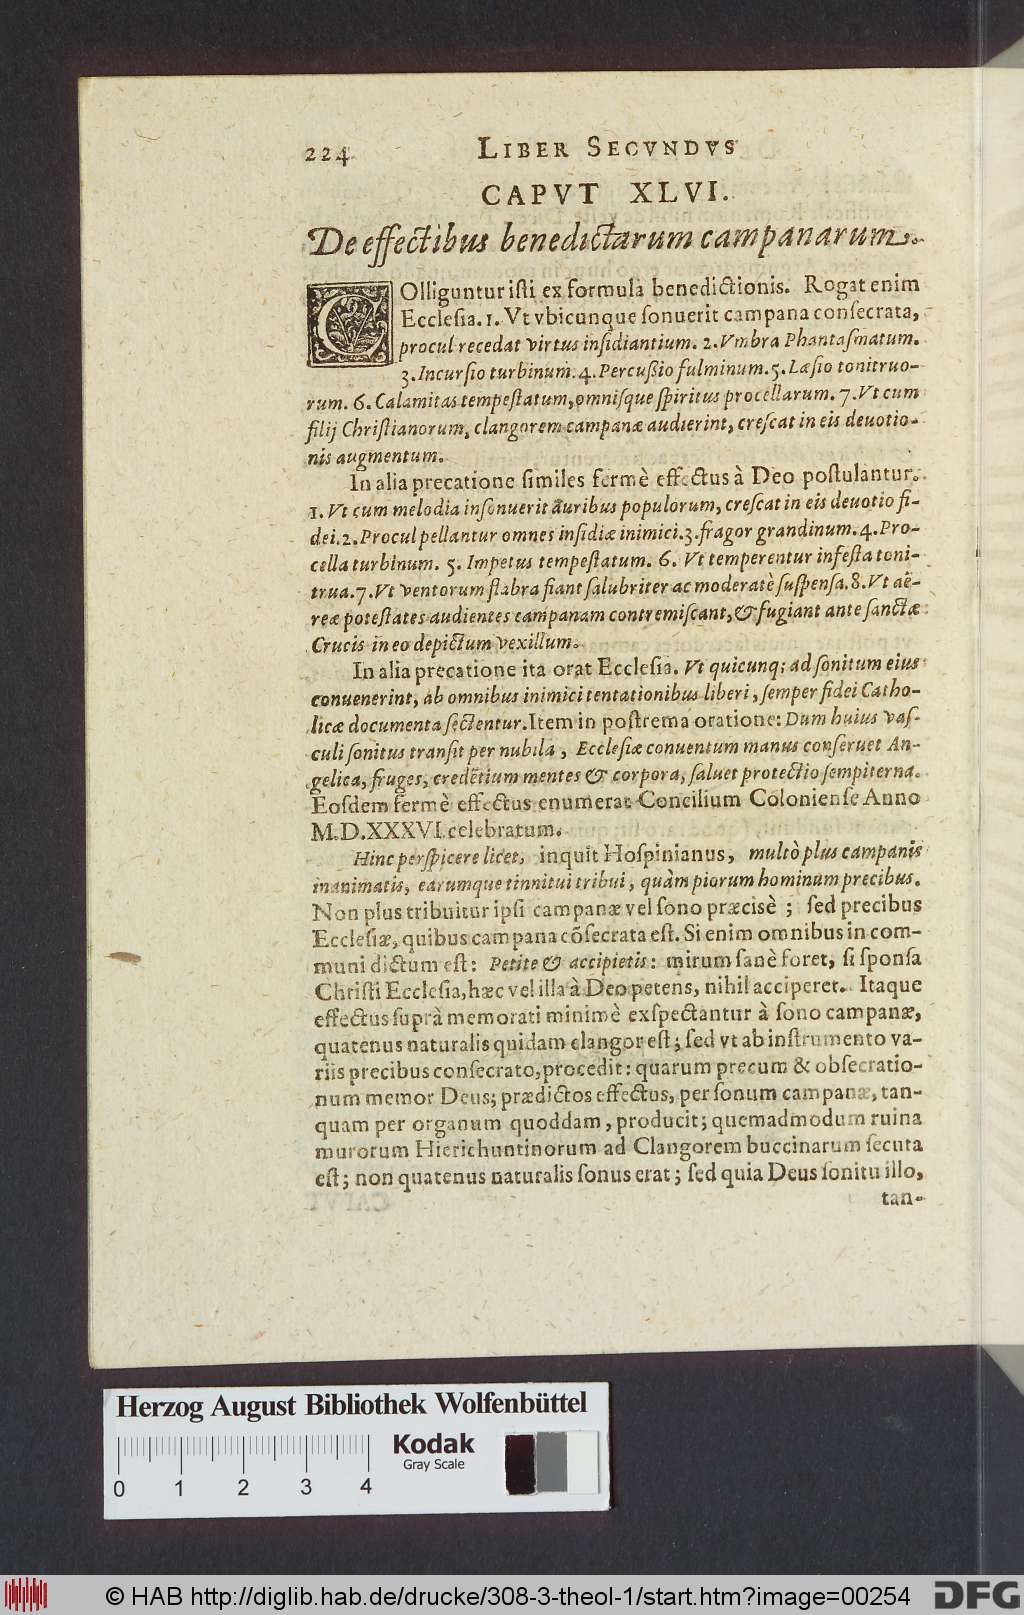 224 LIBER SECVNDVS
CAPVT XLVI.
De effectibus benedictarum campanarum.
COlliguntur isti ex formula benedictionis. Rogat enim
Ecclesia. 1. Vt vbicunque sonuerit campana consecrata,
procul recedat virtus insidiantium. 2. Vmbra Phantasmatum.
3. Incursio turbinum. 4. Percußio fulminum. 5. Læsio tonitruo-
rum. 6. Calamitas tempestatum, omnisque spiritus procellarum. 7. Vt cum
filij Christianorum, clangorem campanæ audierint, crescat in eis deuotio-
nis augmentum.
In alia precatione similes fermè effectus à Deo postulantur.
1. Vt cum melodia insonuerit auribus populorum, crescat in eis deuotio fi-
dei. 2. Procul pellantur omnes insidiæ inimici. 3. fragor grandinum. 4. Pro-
cella turbinum. 5. Impetus tempestatum. 6. Vt temperentur infesta toni-
trua. 7. Vt ventorum flabra fiant salubriter ac moderatè suspensa. 8. Vt aë-
reæ potestates audientes campanam contremiscant, & fugiant ante sanctæ
Crucis in eo depictum vexillum.
In alia precatione ita orat Ecclesia. Vt quicunq; ad sonitum eius
conuenerint, ab omnibus inimici tentationibus liberi, semper fidei Catho-
licæ documenta sectentur. Item in postrema oratione: Dum huius vas-
culi sonitus transit per nubila, Ecclesiæ conuentum manus conseruet An-
gelica, fruges, credẽtium mentes & corpora, saluet protectio sempiterna.
Eosdem fermè effectus enumerat Concilium Coloniense Anno
M.D.XXXVI. celebratum.
Hinc perspicere licet, inquit Hospinianus, multò plus campanis
inanimatis, earumque tinnitui tribui, quàm piorum hominum precibus.
Non plus tribuitur ipsi campanæ vel sono præcisè; sed precibus
Ecclesiæ, quibus campana cõsecrata est. Si enim omnibus in com-
muni dictum est: Petite & accipietis: mirum sanè foret, si sponsa
Christi Ecclesia, hæc vel illa à Deo petens, nihil acciperet. Itaque
effectus suprà memorati minimè exspectantur à sono campanæ,
quatenus naturalis quidam clangor est; sed vt ab instrumento va-
riis precibus consecrato, procedit: quarum precum & obsecratio-
num memor Deus; prædictos effectus, per sonum campanæ, tan-
quam per organum quoddam, producit; quemadmodum ruina
murorum Hierichuntinorum ad Clangorem buccinarum secuta
est; non quatenus naturalis sonus erat; sed quia Deus sonitu illo,
tan-
Herzog August Bibliothek Wolfenbüttel
Kodak
Gray Scale
0 1 2 3 4
© HAB http://diglib.hab.de/drucke/308-3-theol-1/start.htm?image=00254
DFG